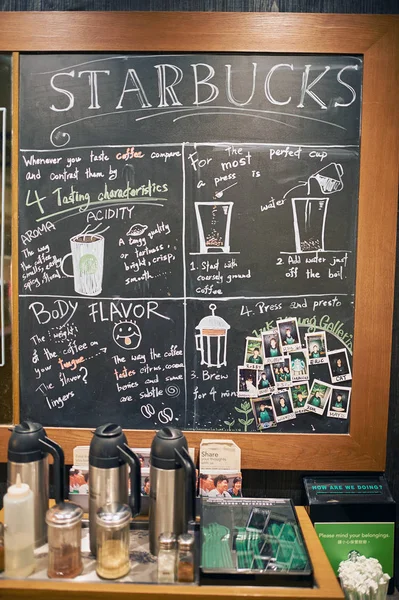 STARBUCKS
Whenever you taste coffee compare
and contrast them by
4 Tasting characteristics
ACIDITY
A tangy quality
or tartness.
bright, crisp,
smooth
AROMA
The way
the coffee
smells,
spicy,
BODY
The weight
of the coffee on
your tongue
The flavor?
lingers
FLAVOR
The way the coffee
tastes citrus, cocoa
berries and some
are subtle
For the perfect cup
most
a press is
1. Start with
coarsely ground
coffee
water
2. Add water just
off the boil.
3. Brew
for 4 min
4. Press and presto
ERIC
CAT
Share
HOW ARE WE DOING?
Please mind your belongings.